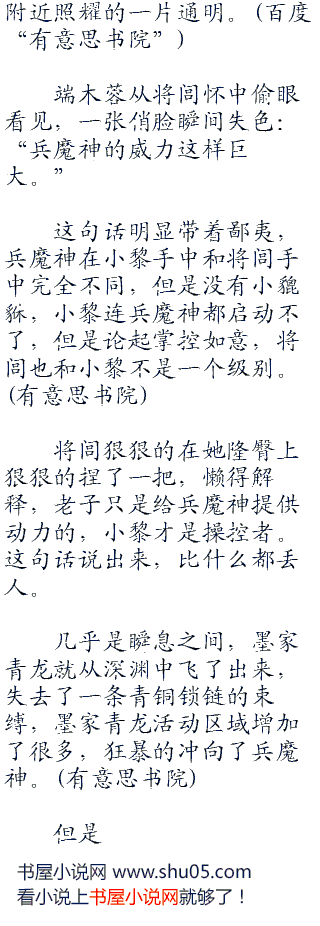 附近照耀的一片通明。(百度
“有意思书院”)
端木蓉从将闾怀中偷眼
看见，一张俏脸瞬间失色：
“兵魔神的威力这样巨
大。”
这句话明显带着鄙夷，
兵魔神在小黎手中和将闾手
中完全不同，但是没有小貔
貅，小黎连兵魔神都启动不
了，但是论起掌控如意，将
闾也和小黎不是一个级别。
(有意思书院)
将闾狠狠的在她隆臀上
狠狠的捏了一把，懒得解
释，老子只是给兵魔神提供
动力的，小黎才是操控者。
这句话说出来，比什么都丢
人。
几乎是瞬息之间，墨家
青龙就从深渊中飞了出来，
失去了一条青铜锁链的束
缚，墨家青龙活动区域增加
了很多，狂暴的冲向了兵魔
神。(有意思书院)
但是
书屋小说网 www.shu05.com
看小说上书屋小说网就够了！